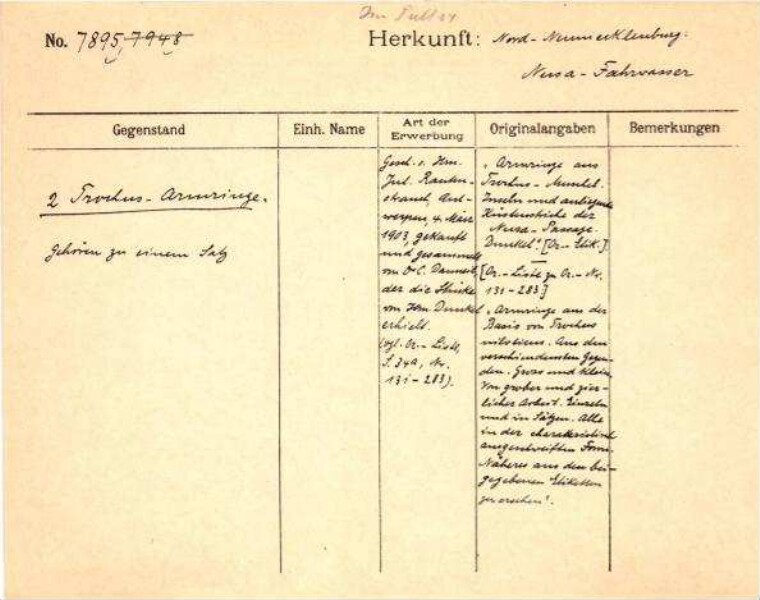 Im Pult 24
No. 7895, 7948
Herkunft: Nord-Neumecklenburg.
Nusa-Fahrwasser
Gegenstand
Einh. Name
Art der Erwerbung
Originalangaben
Bemerkungen
2 Trochus-Armringe.
Gehören zu einem Satz
Gesch. v. Hrn.
Jul. Rauten-
strauch, Ant-
werpen, 4. März
1903, gekauft
und gesammelt
von O. C. Dannert,
der die Stücke
von Hrn. Dunkel
erhielt.
(vgl. Or.-Liste,
S. 34a, Nr.
131-283).
"Armringe aus
Trochus-Muschel.
Inseln und anliegende
Küstenstriche der
Nusa-Passage.
Dunkel". [Or.-Etik.].
[Or.-Liste zu Or.-Nr.
131-283]
"Armringe aus der
Basis von Trochus
niloticus. Aus den
verschiedensten Gegen-
den. Gross und klein
Von grober und zier-
licher Arbeit. Einzeln
und in Sätzen. Alle
in der charakteristisch
ausgeschweiften Form.
Näheres aus den bei-
gegebenen Etiketten
zu ersehen".